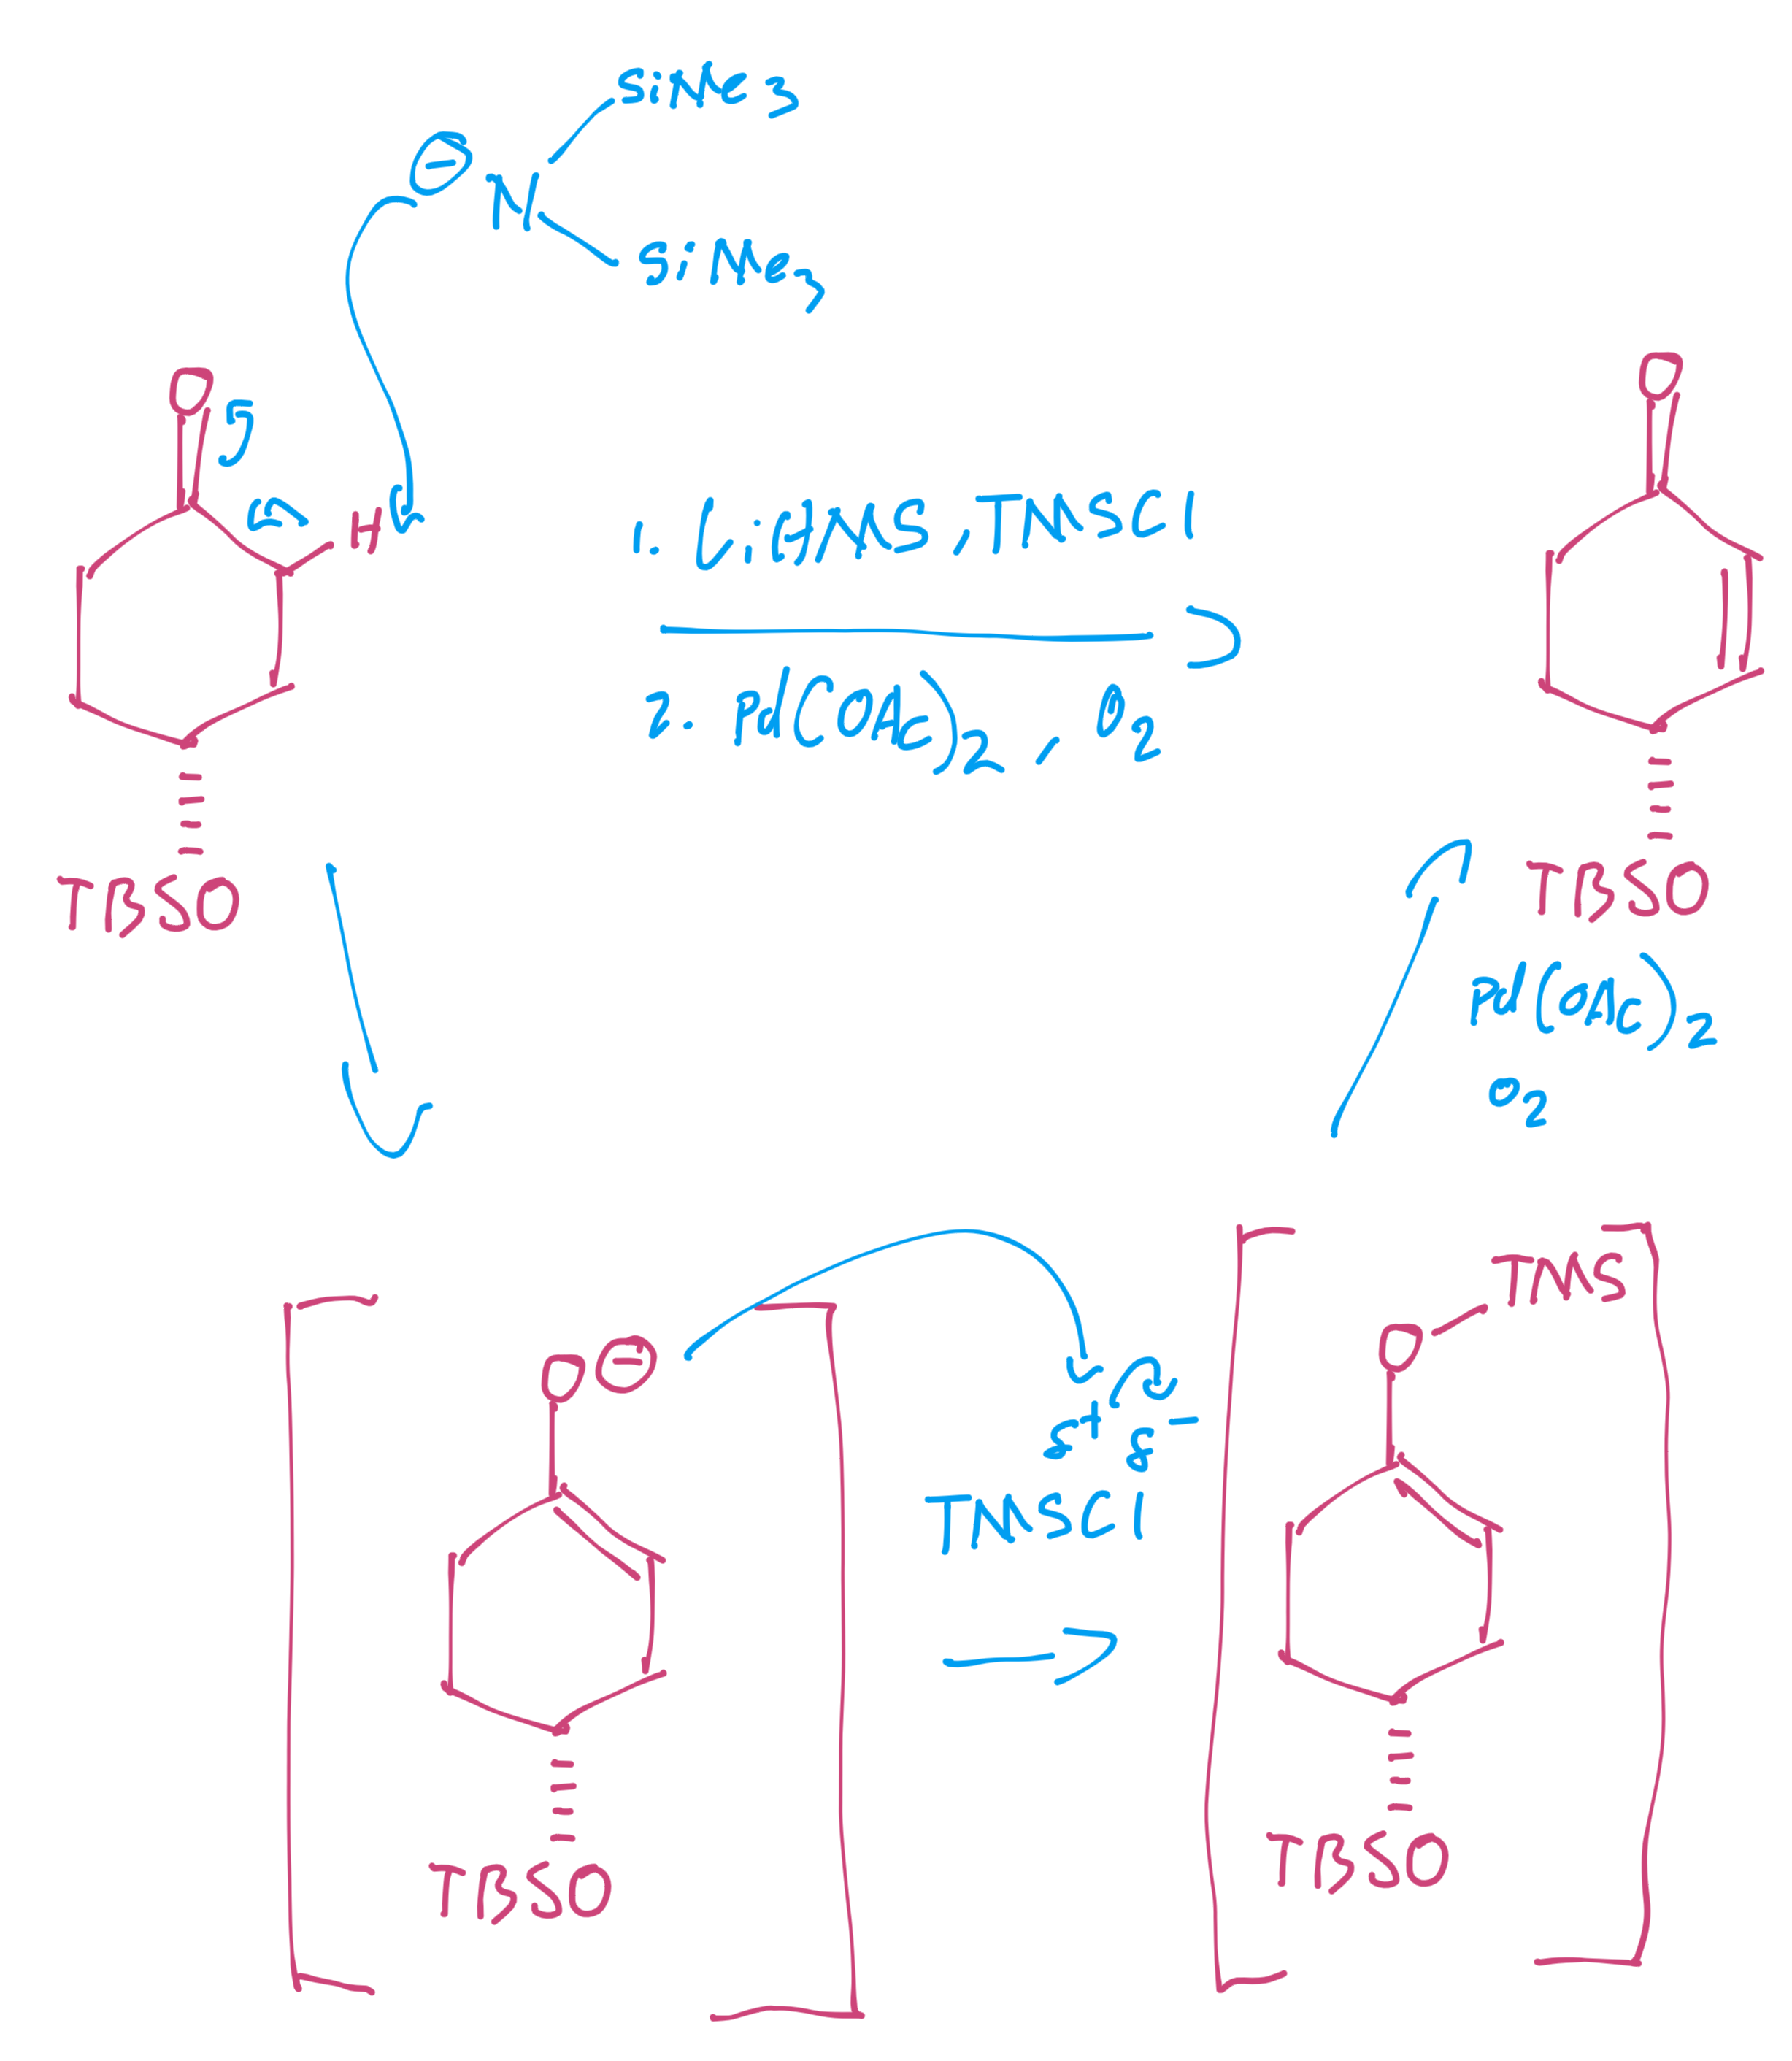 SiMe3
⊖
N
SiMe3
O
H
1. LiHMDS, TMSCl
2. Pd(OAc)2, O2
TBSO
O
TBSO
Pd(OAc)2
O2
O ⊖
TBSO
δ+ δ-
TMSCl
TMS
O
TBSO